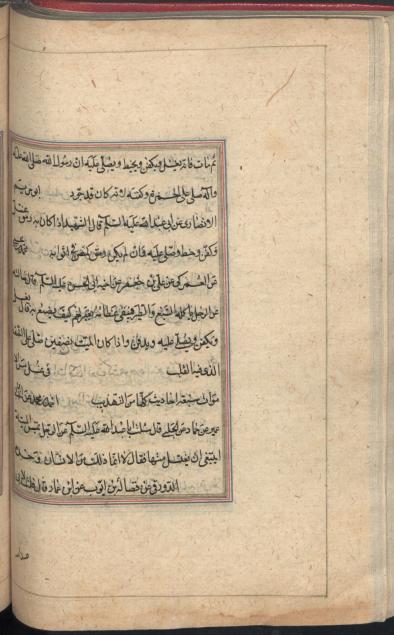 ثم مات فانه يغسل ويكفن ويحنط ويصلى عليه ان رسول الله صلى الله عليه
وآله صلى على الحمزة وكفنه لانه كان قد جرد ابو مريم
الانصارى عن ابى عبد الله عليه السلام قال الشهيد اذا كان به رمق غسل
وكفن وحنط وصلى عليه فان لم يكن به رمق كفن في اثوابه
عن العمركى عن على بن جعفر عن اخيه ابى الحسن عليه السلام قال سالته
عن الرجل ياكله السبع والطير فيبقى عظامه بغير لحم كيف يصنع به قال يغسل
ويكفن ويصلى عليه ويدفن واذا كان الميت نصفين صلى على النصف
الذى فيه القلب فى غسل
احاديث كلها من التهذيب
عن حماد عن الحلبى قال سئل ابو عبد الله عليه السلام عن الرجل يمس الميتة
اينبغى ان يغتسل منها فقال لا انما ذلك من الانسان وحده
الدورقى عن فضالة بن ايوب عن